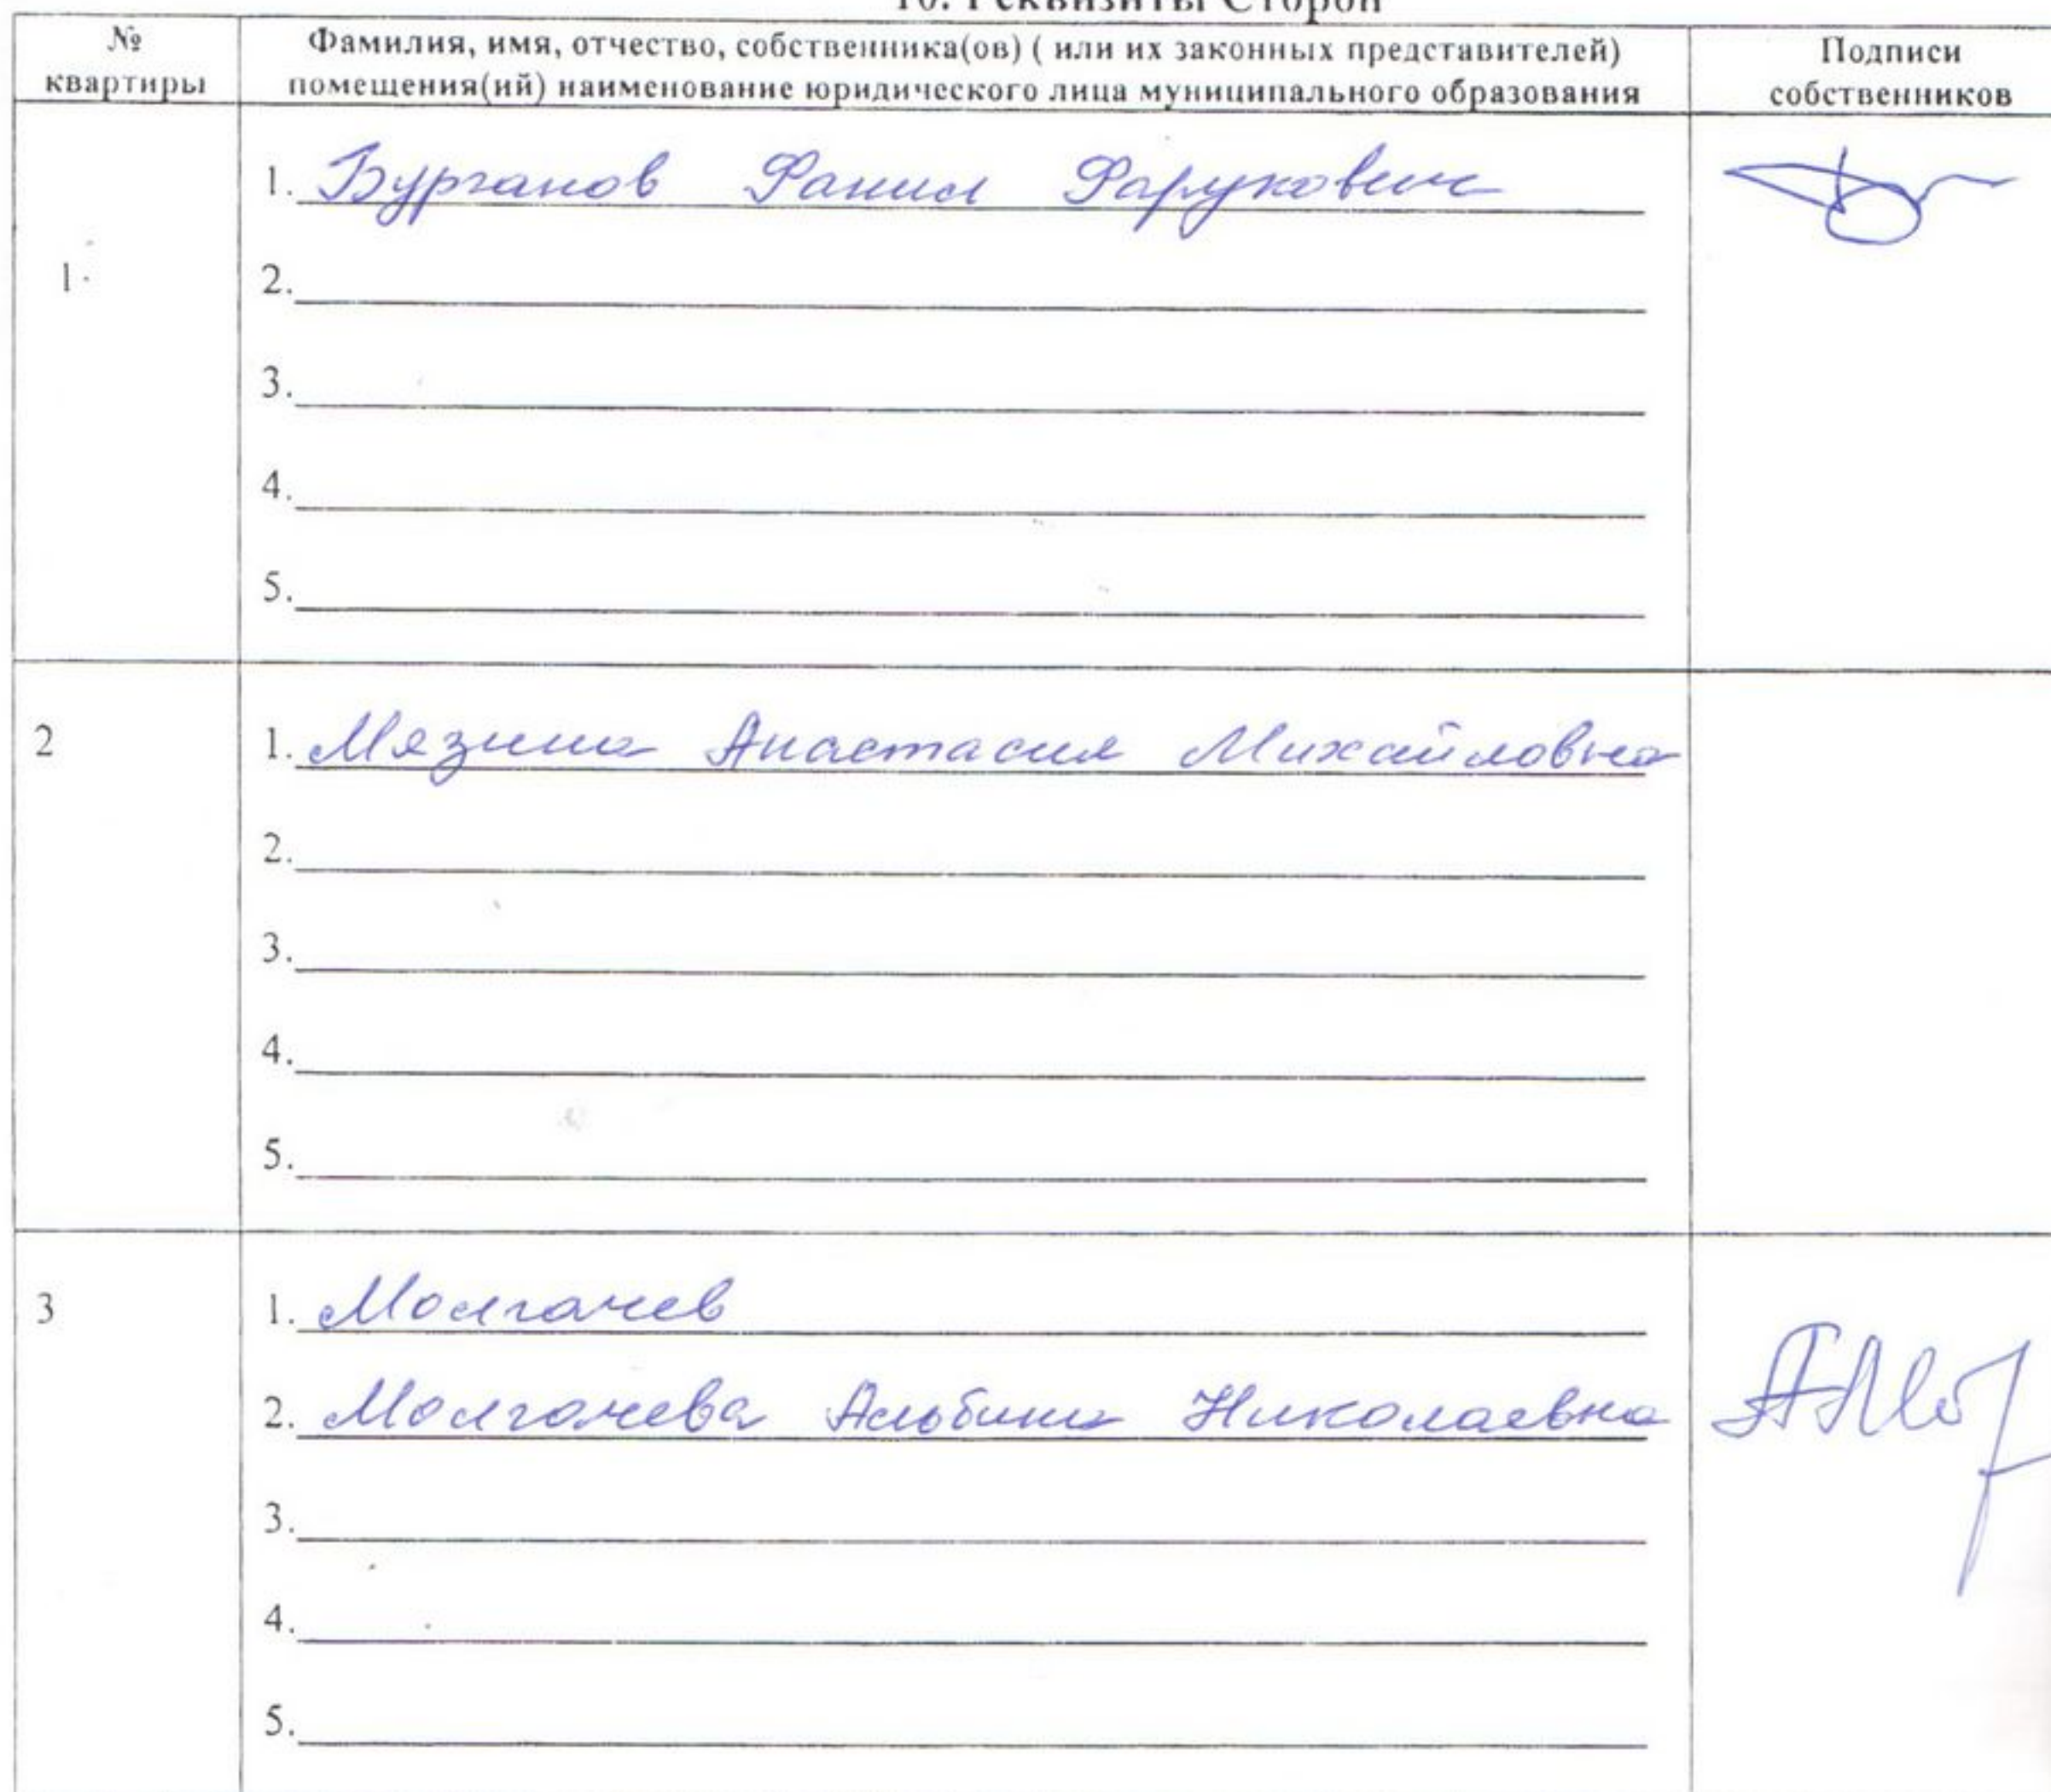 10. Реквизиты Сторон
№ квартиры
Фамилия, имя, отчество, собственника(ов) ( или их законных представителей) помещения(ий) наименование юридического лица муниципального образования
Подписи собственников
1.
1. Бурганов Фанил Фарукович
2.
3.
4.
5.
2
1. Мязина Анастасия Михайловна
2.
3.
4.
5.
3
1. Молгачев
2. Молгачева Альбина Николаевна
3.
4.
5.